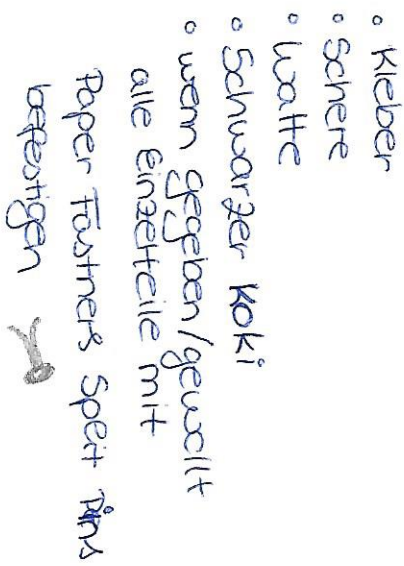 • Kleber
• Schere
• Watte
• Schwarzer Koki
• wenn gegeben/gewollt
alle Einzelteile mit
Paper Fastners Split Pins
befestigen